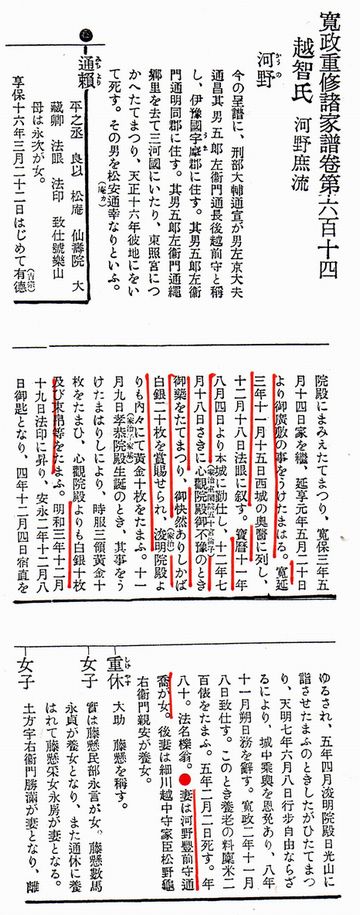 寛政重修諸家譜巻第六百十四
越智氏 河野庶流
河野
かうの
今の呈譜に、刑部大輔通宣が男左京大夫
通昌其男五郎左衛門通長後越前守と稱
し、伊豫國宇摩郡に住す。其男五郎左衛
門通明同郡に住す。其男五郎左衛門通繩
郷里を去て三河國にいたり、東照宮につ
かへたてまつり、天正十六年彼地にをい
て死す。その男を松安通幸なりといふ。
通頼
平之丞 良以 松庵 仙壽院 大
藏卿 法眼 法印 致仕號樂山
母は永次が女。
享保十六年三月二十二日はじめて有德
(吉宗)
院殿にまみえたてまつり、寛保三年五
月十四日家を繼、延享元年五月二十日
より御廣敷の事をうけたまはる。寛延
三年十一月十五日西城の奥醫に列し、
十二月十八日法眼に叙す。寶曆十一年
八月四日より本城に勤仕し、十二年七
月十八日さきに心觀院殿御不豫のとき
御藥をたてまつり、御快然ありしかば
白銀二十枚を賞賜せられ、浚明院殿よ
(家治)
りも内々にて黄金十枚をたまふ。十一
月九日孝恭院殿生誕のとき、其事をう
けたまはりしにより、時服三領黄金十
枚をたまひ、心觀院殿よりも白銀十枚
及び束帛等をたまふ。明和三年十二月
十九日法印に昇り、安永二年十二月八
日御匙となり、四年十二月四日宿直を
ゆるされ、五年四月浚明院殿日光山に
詣させたまふのときしたがひたてまつ
り、天明七年六月八日行歩自由ならざ
るにより、城中乘輿を恩免あり、八年
十一月朔日務を辭す。寛政二年十一月
八日致仕す。このとき養老の料廩米二
百俵をたまふ。五年二月二日死す。年
八十。法名樂翁。妻は河野豐前守通
喬が女。後妻は細川越中守家臣松野龜
右衛門親安が養女。
重休
しげやす
大助 藤懸を稱す。
實は藤懸民部永言が女。藤懸數馬
女子
永貞が養女となり、また通休に養
はれて藤懸采女永房が妻となる。
女子
土方宇右衛門勝滿が妻となり、離